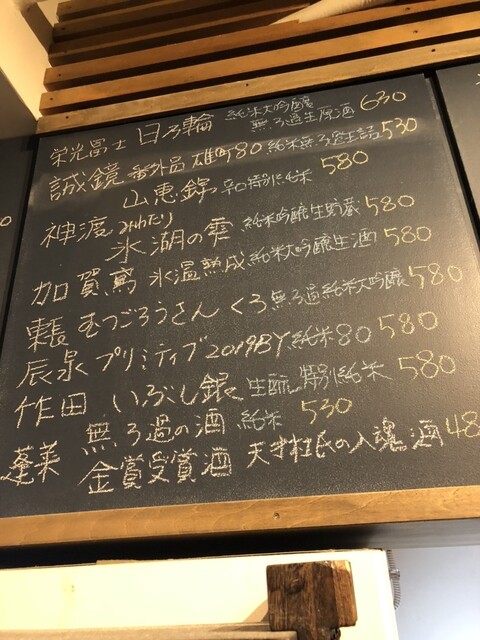 栄光冨士 日乃輪 純米大吟醸 無ろ過生原酒 630
誠鏡 番外品 雄町80 純米無ろ過生詰 530
山恵錦 辛口特別純米 580
神渡 みわたり
氷湖の雫 純米吟醸生貯蔵 580
加賀鳶 氷温熟成 純米大吟醸生酒 580
東長 むつごろうさん くろ 無ろ過純米大吟醸 580
辰泉 プリミティブ2019BY 純米80 580
作田 いぶし銀 生酛 特別純米 580
無ろ過の酒 純米 530
蓬莱 金賞受賞酒 天才杜氏の入魂酒 48